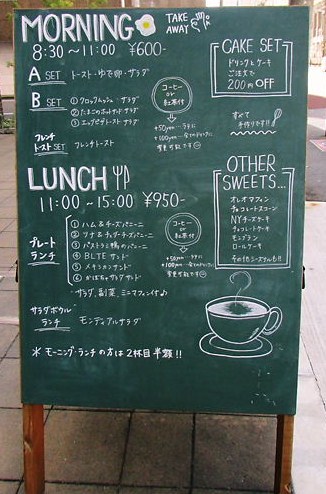 MORNING
TAKE AWAY
8:30〜11:00 ¥600-
A SET トースト・ゆで卵・サラダ
B SET ①クロックムッシュ・サラダ
②たまごのホットサンド・サラダ
③エッグピザトースト・サラダ
フレンチトースト SET フレンチトースト
コーヒー or 紅茶付
+50yen…ラテに
+100yen…全てのドリンクに
変更可能です
CAKE SET
ドリンクとケーキ
ご注文で
200円OFF
すべて
手作りです!!
LUNCH
11:00〜15:00 ¥950-
プレートランチ
①ハム&チーズパニーニ
②ツナ&チェダーチーズパニーニ
③パストラミ鴨のパニーニ
④BLTEサンド
⑤メキシカンサンド
⑥かぼちゃサラダサンド
サラダ、副菜、ミニマフィン付♪
コーヒー or 紅茶付
+50yen…ラテに
+100yen…全てのドリンクに
変更可能です
サラダボウルランチ
モンディアルサラダ
※モーニング・ランチの方は2杯目半額!!
OTHER
SWEETS...
オレオマフィン
チョコレートスコーン
NYチーズケーキ
チョコレートケーキ
モンブラン
ロールケーキ
その他シーズナルも!!